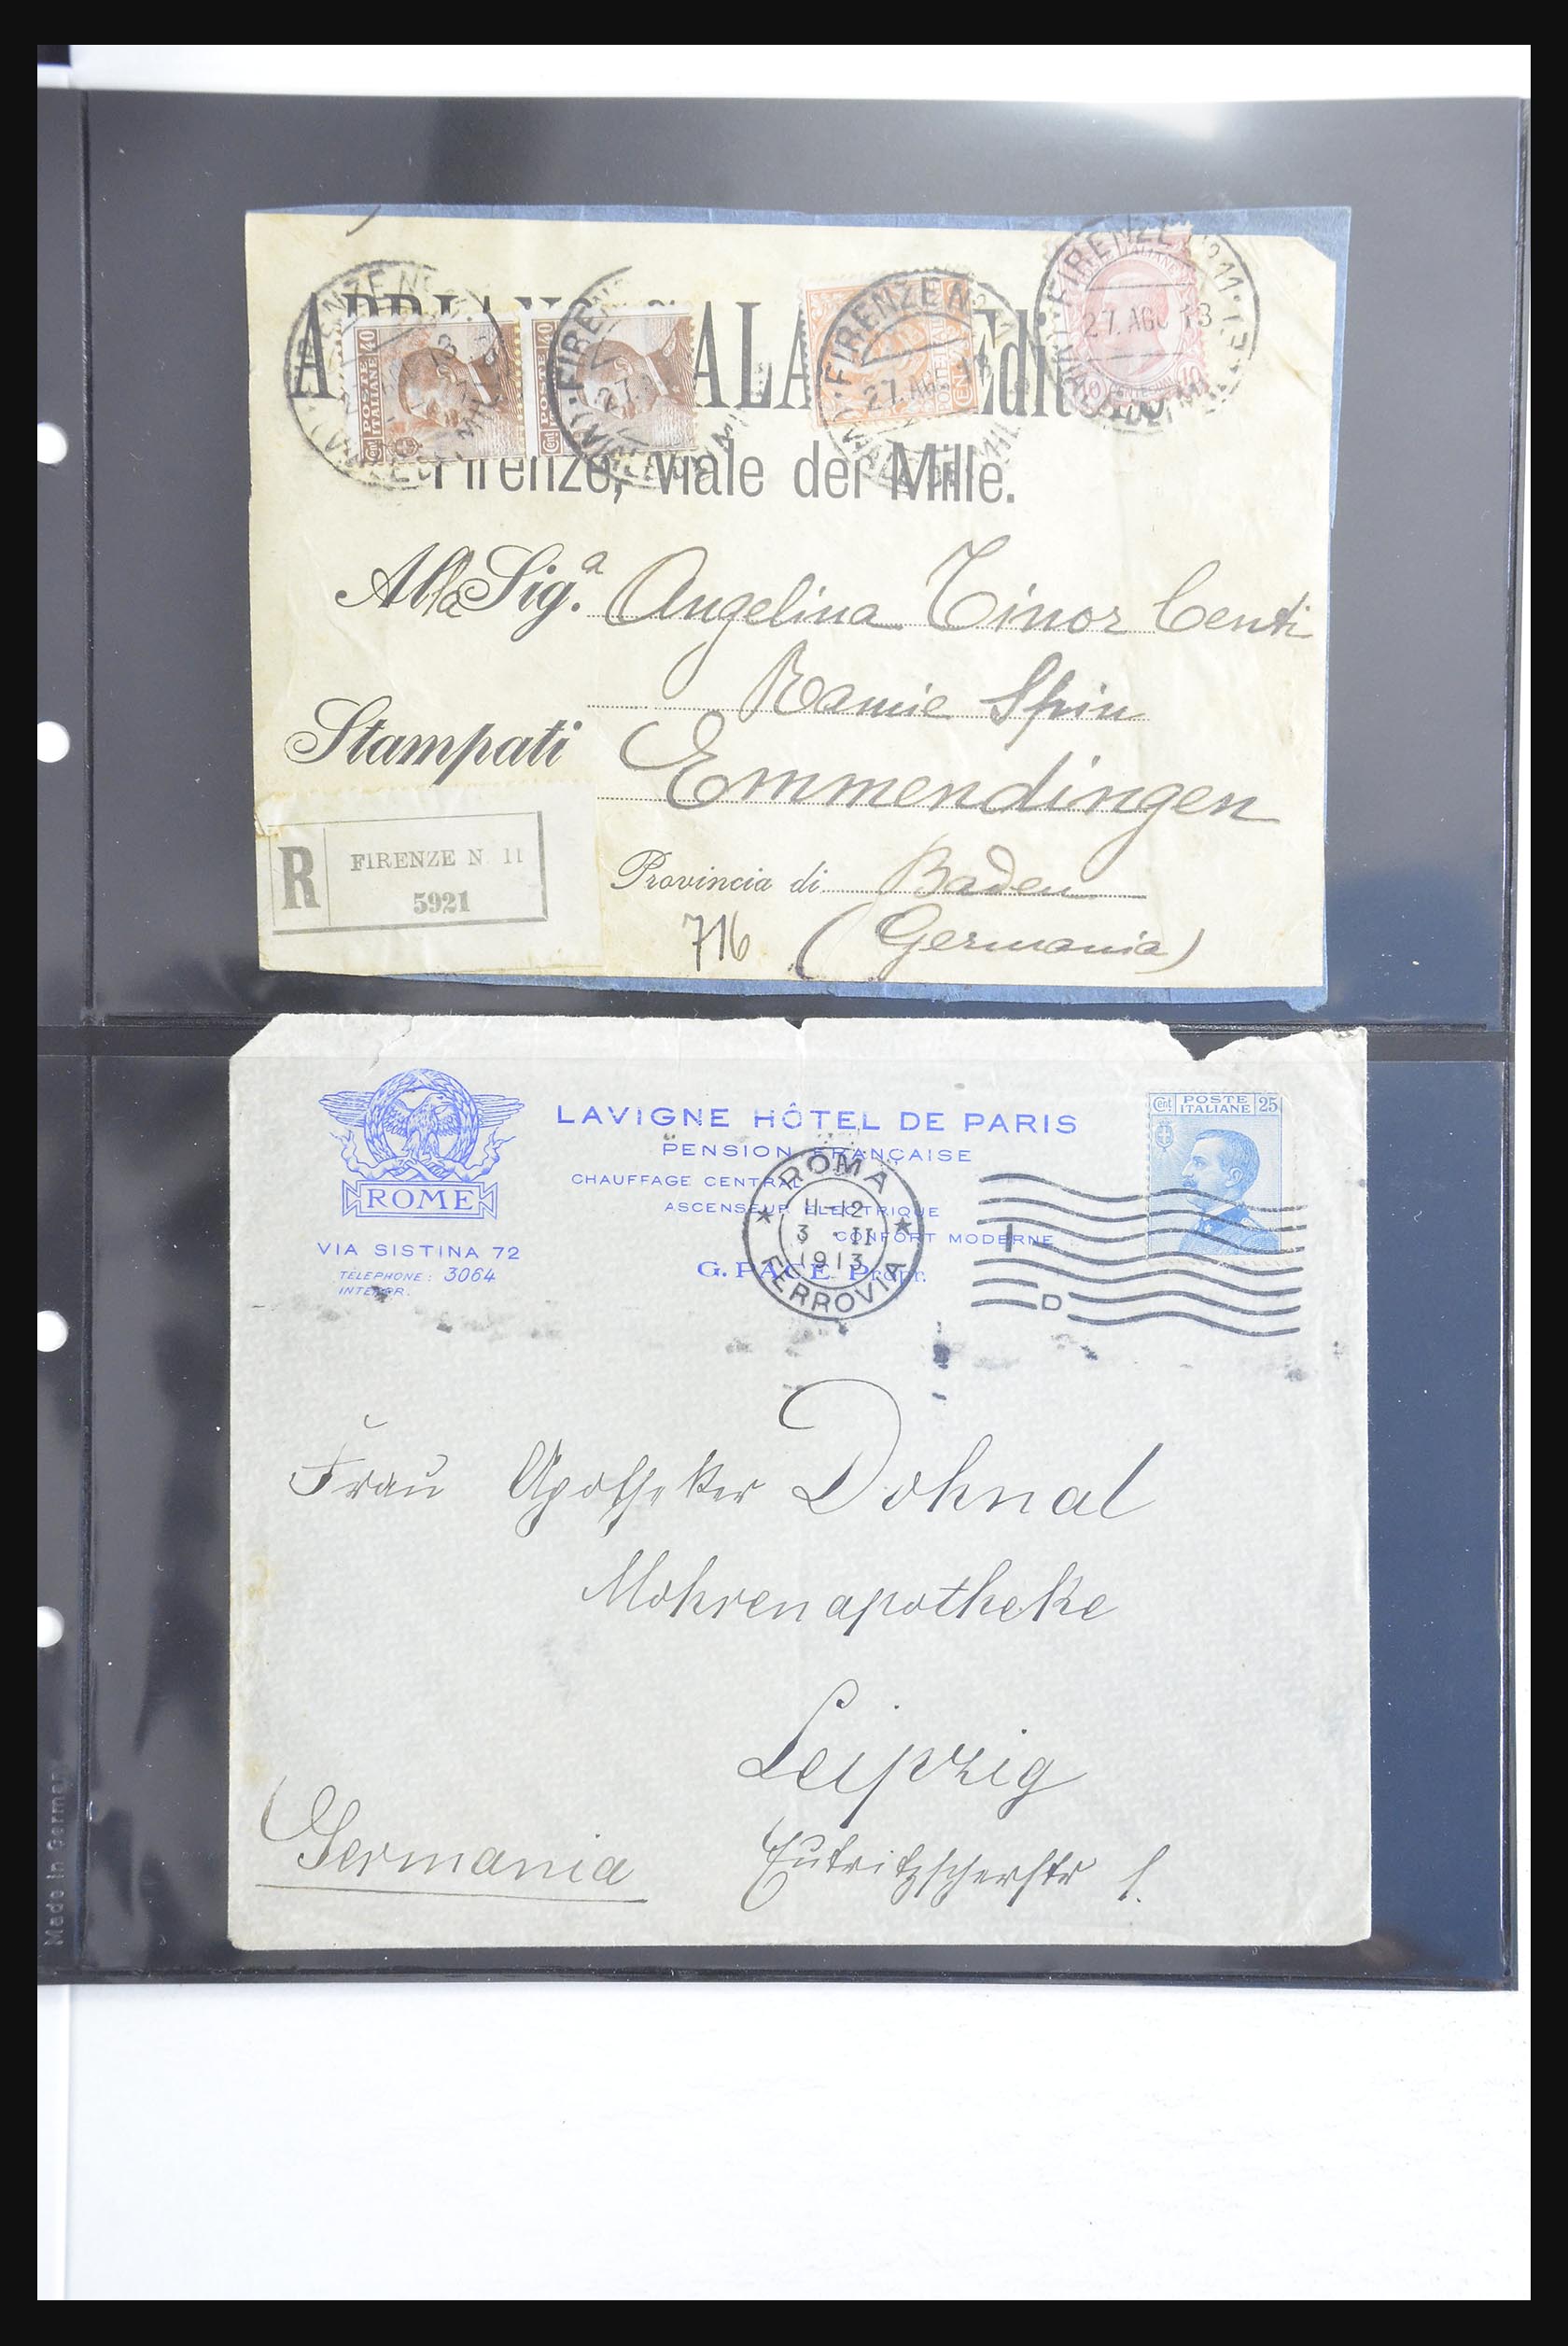 FIRENZE N. 11
27. AGO 13
VIALE DEI MILLE
Cent POSTE ITALIANE 40
Cent POSTE ITALIANE 40
Firenze, Viale dei Mille.
Alla Sig.a Angelina Tinor Centi
Ramie Spin
Stampati
Emmendingen
R FIRENZE N. 11
5921
Provincia di Baden
716 (Germania)
LAVIGNE HÔTEL DE PARIS
PENSION FRANÇAISE
CHAUFFAGE CENTRAL
ASCENSEUR ÉLECTRIQUE
CONFORT MODERNE
G. PACE Propr.
ROME
VIA SISTINA 72
TÉLÉPHONE: 3064
INTERPR.
Cent POSTE ITALIANE 25
ROMA
11-12
3 · II
1913
FERROVIA
I
D
Frau Apotheker Dohnal
Mohrenapotheke
Leipzig
Germania
Eutritzscherstr 1.
Made in Germany